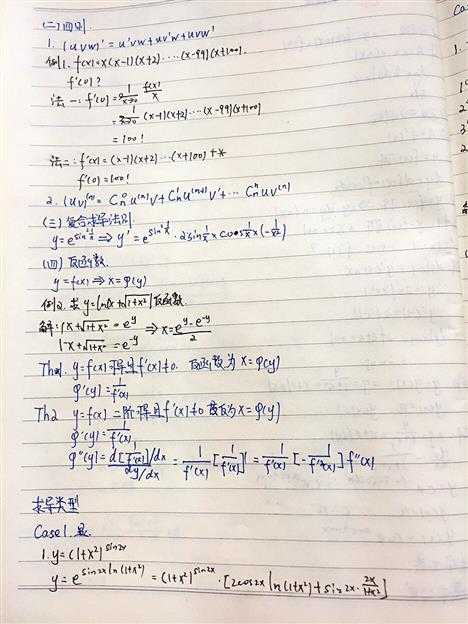 (二) 四则
1. (uvw)' = u'vw + uv'w + uvw'
例1. f(x) = x(x-1)(x+2)····(x-99)(x+100).
f'(0)?
法一: f'(0) = lim x→0 f(x)/x
= lim x→0 (x-1)(x+2)····(x-99)(x+100)
= 100!
法二: f'(x) = (x-1)(x+2)···(x+100) + x
f'(0) = 100!
2. (uv)^(n) = C_n^0 u^(n) v + C_n^1 u^(n-1) v' + ··· C_n^n u v^(n)
(三) 复合求导法则
y = e^{sin²1/x} ⇒ y' = e^{sin²1/x} · 2sin 1/x × cos 1/x × (-1/x²)
(四) 反函数.
y = f(x) ⇒ x = φ(y)
例2. 求 y = ln(x+√(1+x²)) 反函数.
解: { x+√(1+x²) = e^y
-x+√(1+x²) = e^-y ⇒ x = (e^y - e^-y)/2
Th1. y = f(x) 可导且 f'(x) ≠ 0. 反函数为 x = φ(y)
φ'(y) = 1/f'(x)
Th2 y = f(x) 二阶可导且 f'(x) ≠ 0 反为 x = φ(y)
φ'(y) = 1/f'(x).
φ''(y) = d[1/f'(x)]/dx / dy/dx = 1/f'(x) [1/f'(x)]' = 1/f'(x) [-1/f'²(x)] · f''(x)
求导类型
Case1. 显.
1. y = (1+x²)^{sin2x}
y = e^{sin2x ln(1+x²)} = (1+x²)^{sin2x} · [2cos2x ln(1+x²) + sin2x · 2x/(1+x²)]